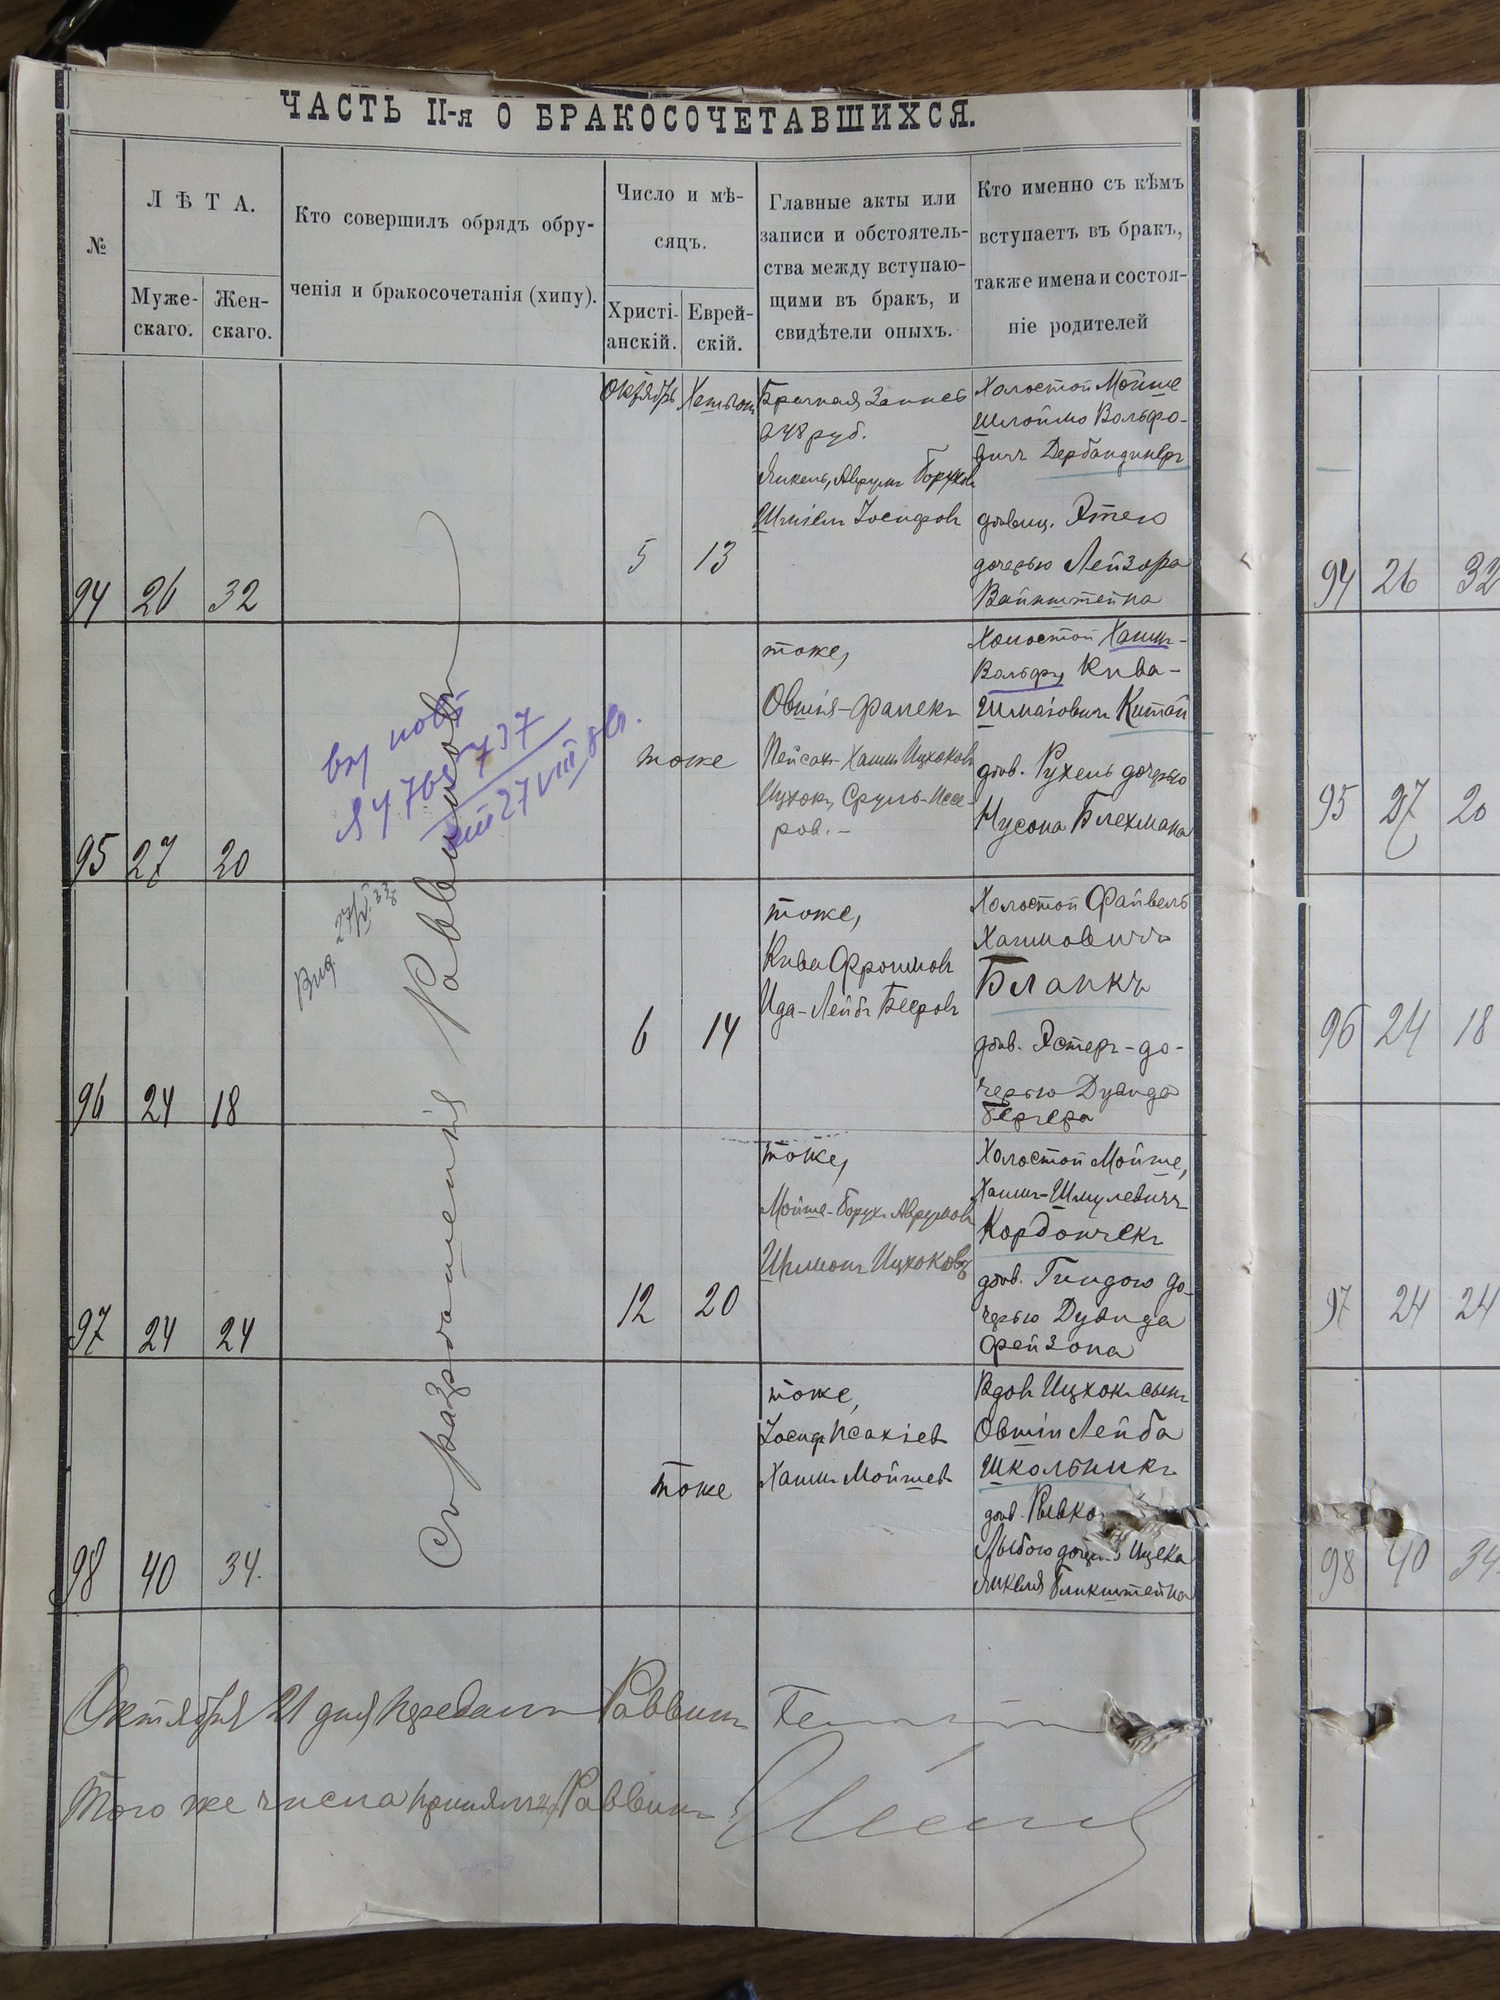 ЧАСТЬ II-я О БРАКОСОЧЕТАВШИХСЯ.
№
ЛѢТА.
Муже-
скаго.
Жен-
скаго.
Кто совершилъ обрядъ обру-
ченія и бракосочетанія (хипу).
Число и мѣ-
сяцъ.
Христі-
анскій.
Еврей-
скій.
Главные акты или
записи и обстоятель-
ства между вступаю-
щими въ бракъ, и
свидѣтели оныхъ.
Кто именно съ кѣмъ
вступаетъ въ бракъ,
также имена и состоя-
ніе родителей
Съ разрѣшенія Раввина
94 26 32
Октябрь
5 13
Брачная Запись
248 руб.
Янкель, Аврумъ Боруховъ
Шміелъ Іосифовъ
Холостой Мойше
Шлоймо Вольфо-
вичъ Дербандикеръ
дѣвиц. Этею
дочерью Лейзора
Вайнштейна
95 27 20
тоже
тоже,
Овшія-Фалекъ
Пейсах-Хаимъ Ицхоковъ
Ицхокъ, Сруль-Иссе-
ров. -
Холостой Хаимъ-
Вольфъ Кива-
Шмаіовичъ Китай
дѣв. Рухель дочерью
Нусона Блехмана
27/IV 33
Вид.
96 24 18
6 14
тоже,
Кива Фроимовъ
Ида-Лейбъ Бееровъ
Холостой Файвель
Хаимовичъ
Бланкъ
дѣв. Эстеръ-до-
черью Дувида
Бергера
97 24 24
12 20
тоже,
Мойше-Борухъ Аврумовъ
Шлиомъ Ицхоковъ
Холостой Мойше,
Хаимъ-Шмулевичъ
Кордончекъ
дѣв. Гиндою до-
черью Дувида
Фейзона
98 40 34.
тоже
тоже,
Іосиф Псахіев
Хаимъ Мойшев
Вдов Ицхокъ сынъ
Овшіи Лейба
Школьникъ
дѣв. Рывко
Лыбою Ицека
Янкеля Бликштейна
Октября 21 дня передалъ Раввинъ
Того же числа принялъ Раввинъ
94 26 32
95 27 20
96 24 18
97 24 24
98 40 34